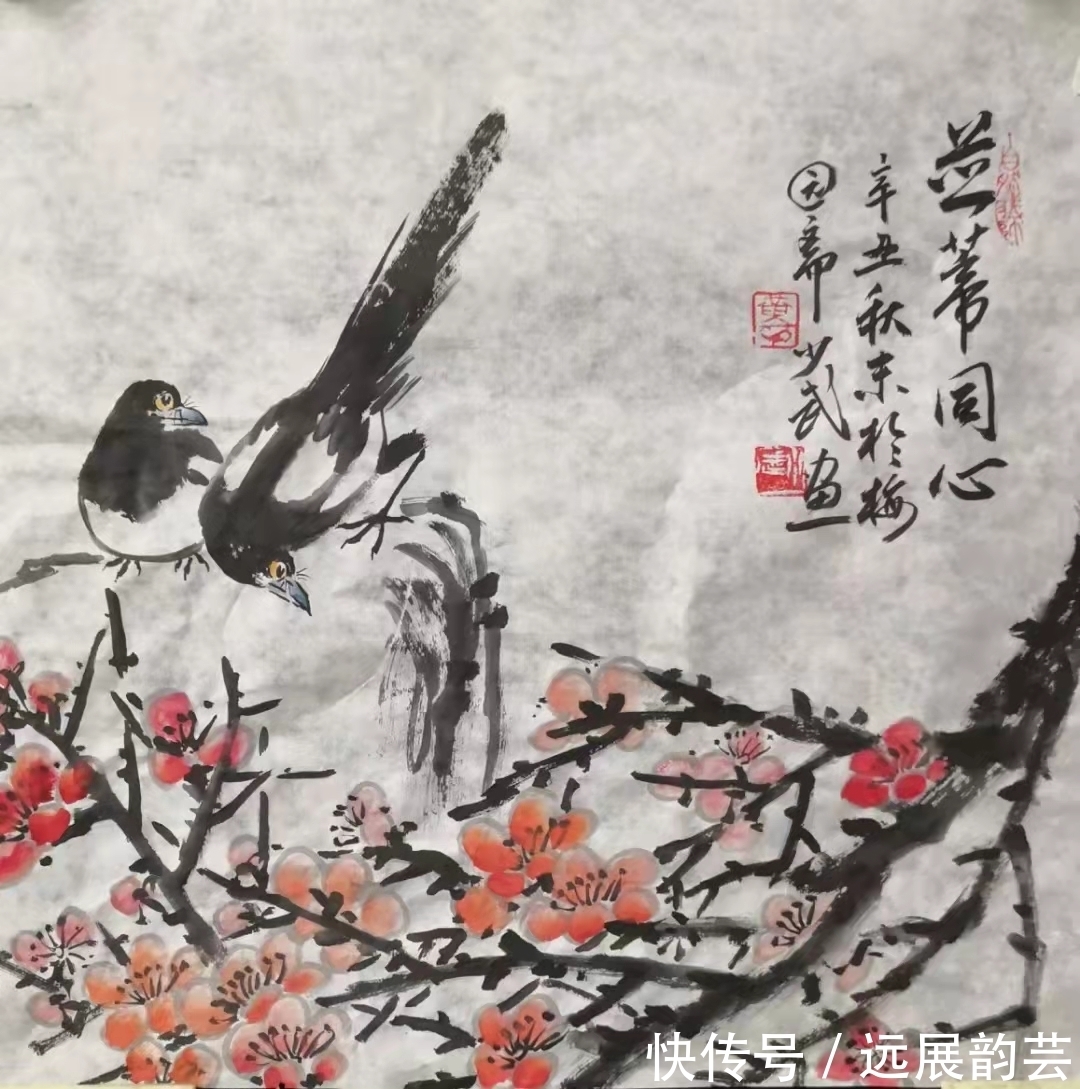 并蒂同心
辛丑秋末於梅
因斋少武画
快传号 / 远展韵芸